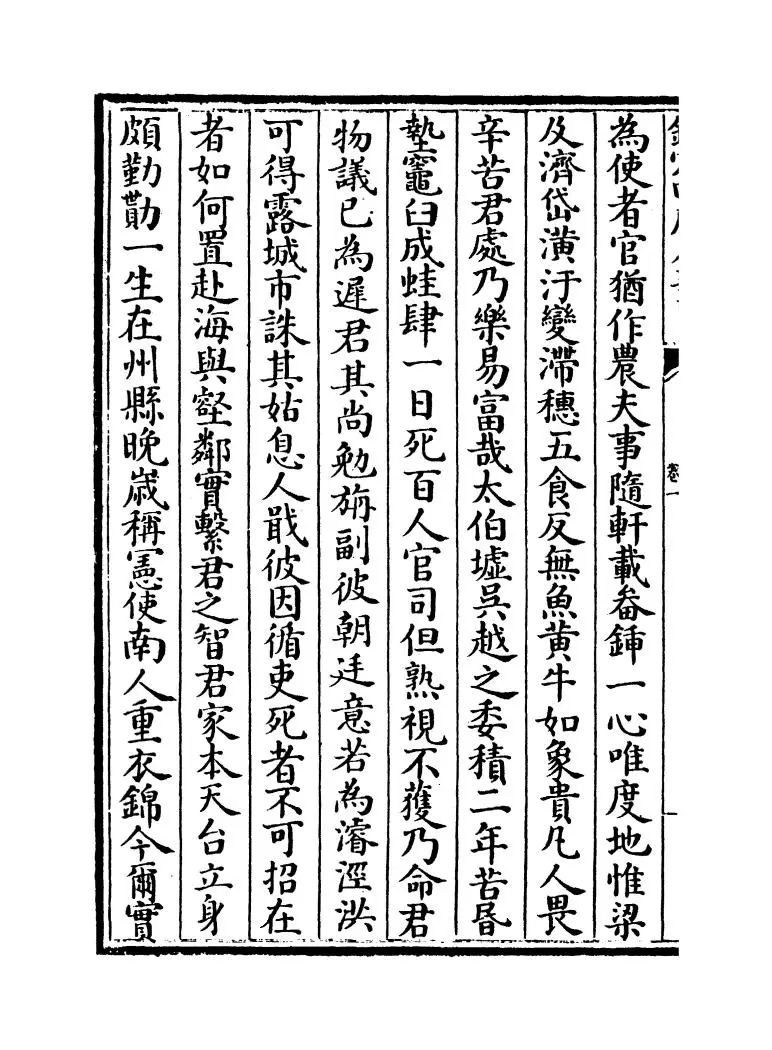 為使者官猶作農夫事隨軒載畚鍤一心唯度地惟梁
及濟岱潢汙變滯穗五食反無魚黄牛如象貴凡人畏
辛苦君處乃樂易富哉太伯墟吳越之委積二年苦昬
墊竈臼成蛙肆一日死百人官司但熟視不獲乃命君
物議已為遲君其尚勉旃副彼朝廷意若為濬溼洪
可得露城市誅其姑息人戢彼因循吏死者不可招在
者如何置赴海與壑鄰實繫君之智君家本天台立身
頗勤勩一生在州縣晚歳稱憲使南人重衣錦今爾實
卷一